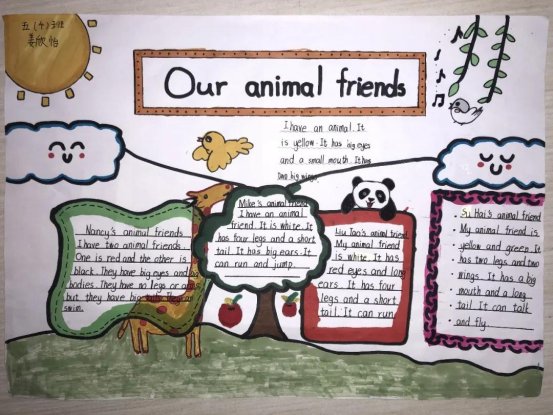 五(4)班
姜欣怡
Our animal friends
I have an animal. It
is yellow. It has big eyes
and a small mouth. It has
two big wings.
Nancy's animal friends
I have two animal friends.
One is red and the other is
black. They have big eyes and big
bodies. They have no legs or
but they have big
swim.
Mike's animal friend
I have an animal
friend. It is white. It
has four legs and a short
tail. It has big ears. It
can run and jump.
Liu Tao's animal friend
My animal friend
is white. It has
red eyes and long
ears. It has four
legs and a short
tail. It can run
Su Hai's animal friend
My animal friend is
yellow and green. It
has two legs and two
wings. It has a big
mouth and a long
tail. It can talk
and fly.